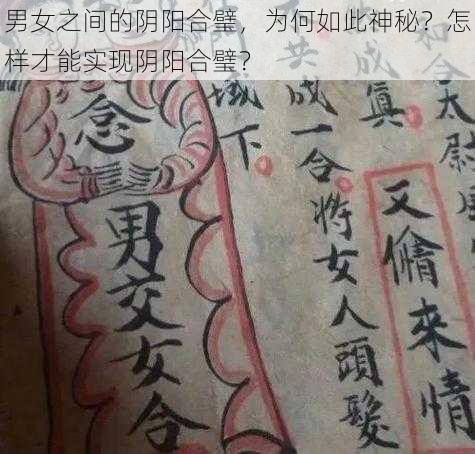 男女之间的阴阳合壁，为何如此神秘？怎
样才能实现阴阳合璧？
如合
太尉
又偹來情
成
真
共成一合將女人頭髮
城下
念
男交女合